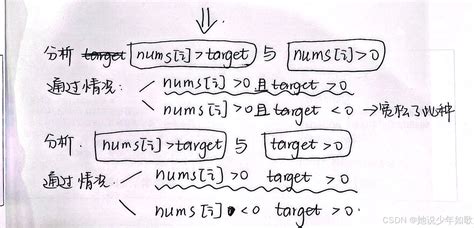 分析 target nums[i]>target 与 nums[i]>0
通过情况: nums[i]>0且target>0
nums[i]>0且target<0→宽松了此种
分析. nums[i]>target 与 target>0
通过情况: nums[i]>0 target>0
nums[i]<0 target>0.
CSDN @她说少年如歌